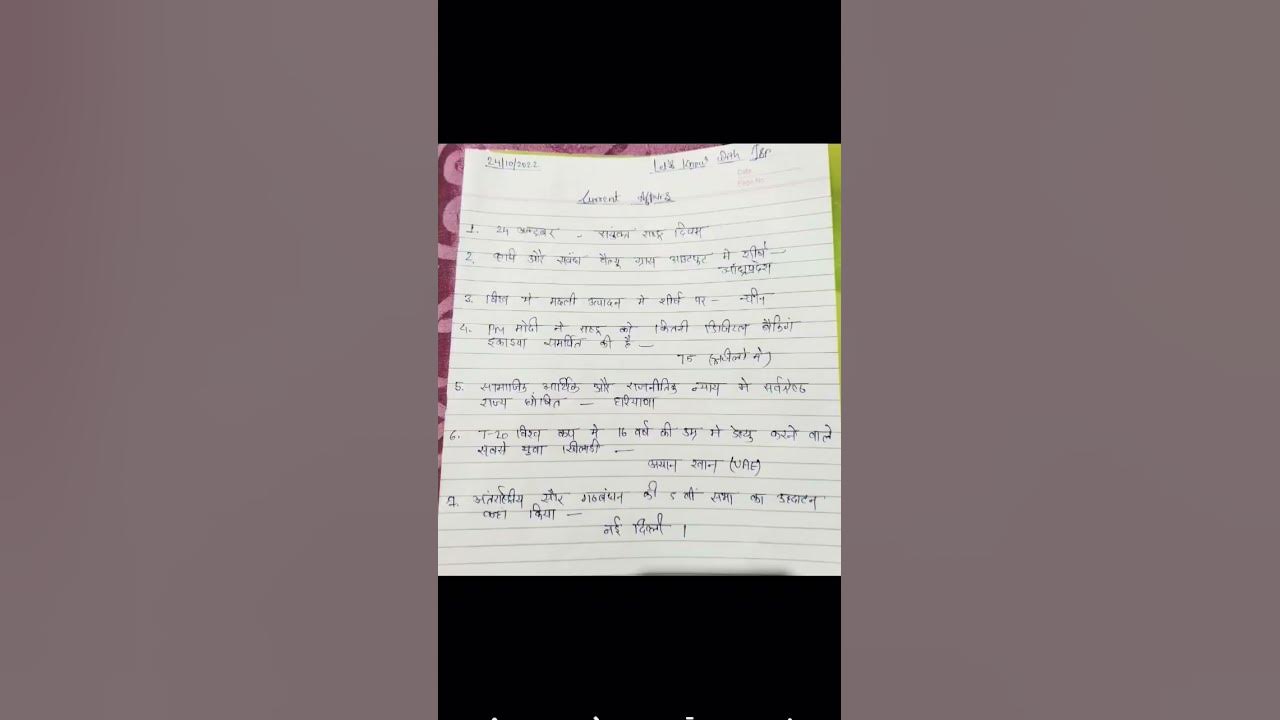 24/10/2022
Let's Know with
Date
Page No.
Current Affairs
1. 24 अक्टूबर - संयुक्त राष्ट्र दिवस
2. कृषि और संबंध वैल्यू ग्रास आउटपुट मे शीर्ष —
आंध्रप्रदेश
3. विश्व मे मछली उत्पादन मे शीर्ष पर - चीन
4. PM मोदी ने राष्ट्र को कितनी डिजिटल बैंकिंग
इकाइया समर्पित की है —
75 (जिलो मे)
5. सामाजिक आर्थिक और राजनीतिक न्याय मे सर्वश्रेष्ठ
राज्य घोषित — हरियाणा
6. T-20 विश्व कप मे 16 वर्ष की उम्र मे डेब्यु करने वाले
सबसे युवा खिलाडी —
अयान खान (UAE)
7. अंतर्राष्ट्रीय सौर गठबंधन की 5 वीं सभा का उद्घाटन
कहा किया —
नई दिल्ली ।